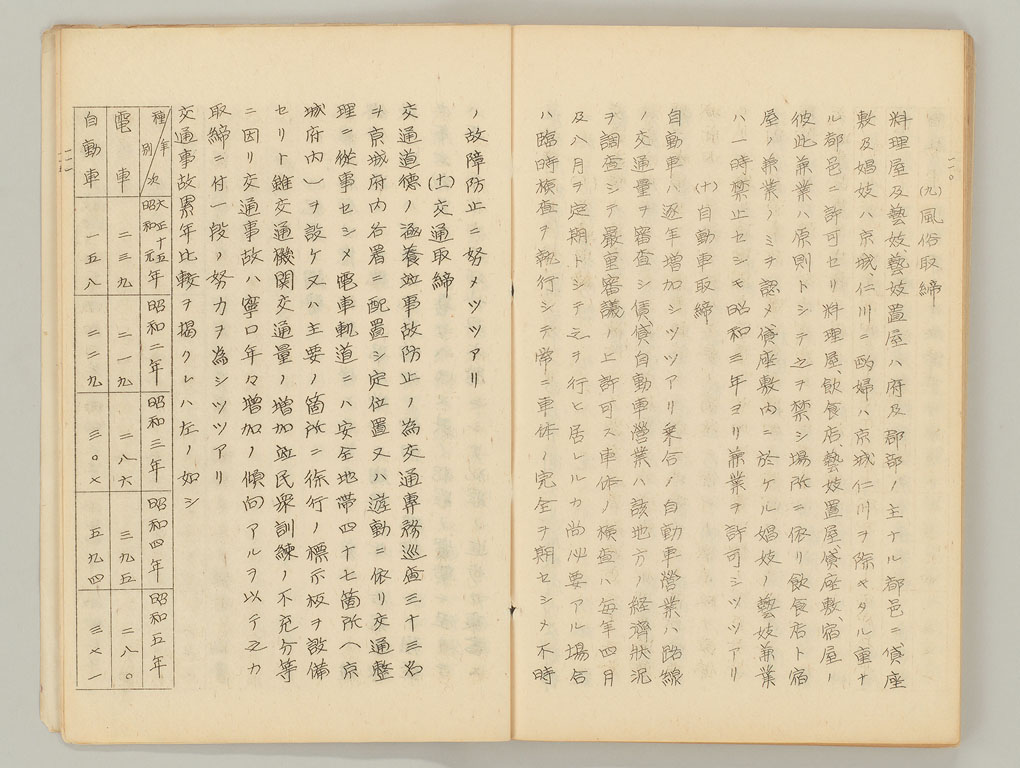 一一〇
(九)風俗取締
料理屋及藝妓藝妓置屋ハ府及郡部ノ主ナル都邑ニ貸座
敷及娼妓ハ京城、仁川ニ酌婦ハ京城仁川ヲ除キタル重ナ
ル都邑ニ許可セリ料理屋、飲食店、藝妓置屋貸座敷、宿屋ノ
彼此兼業ハ原則トシテ之ヲ禁シ場所ニ依リ飲食店ト宿
屋ノ兼業ノミヲ認メ貸座敷内ニ於ケル娼妓ノ藝妓兼業
ハ一時禁止セシモ昭和三年ヨリ兼業ヲ許可シツツアリ
(十)自動車取締
自動車ハ逐年増加シツツアリ乗合ノ自動車營業ハ路線
ノ交通量ヲ審査シ賃貸自動車營業ハ該地方ノ經濟狀況
ヲ調査シテ嚴重審議ノ上許可ス車体ノ檢査ハ毎年四月
及八月ヲ定期トシテ之ヲ行ヒ居レルカ尚必要アル場合
ハ臨時檢査ヲ執行シテ常ニ車体ノ完全ヲ期セシメ不時
一一一
ノ故障防止ニ努メツツアリ
(土)交通取締
交通道德ノ涵養竝事故防止ノ為交通專務巡査三十三名
ヲ京城府内各署ニ配置シ定位置又ハ遊動ニ依リ交通整
理ニ從事セシメ電車軌道ニハ安全地帶四十七箇所(京
城府内)ヲ設ケ又ハ主要ノ箇所ニ徐行ノ標示板ヲ設備
セリト雖交通機關交通量ノ増加竝民衆訓練ノ不充分等
ニ因リ交通事故ハ寧ロ年々増加ノ傾向アルヲ以テ之カ
取締ニ付一段ノ努力ヲ為シツツアリ
交通事故累年比較ヲ揭クレハ左ノ如シ
種別/年次 大正十五昭和元年 昭和二年 昭和三年 昭和四年 昭和五年
電車 二三九 二一九 二八六 三九五 二八〇
自動車 一五八 二二九 三〇七 五九四 三七一